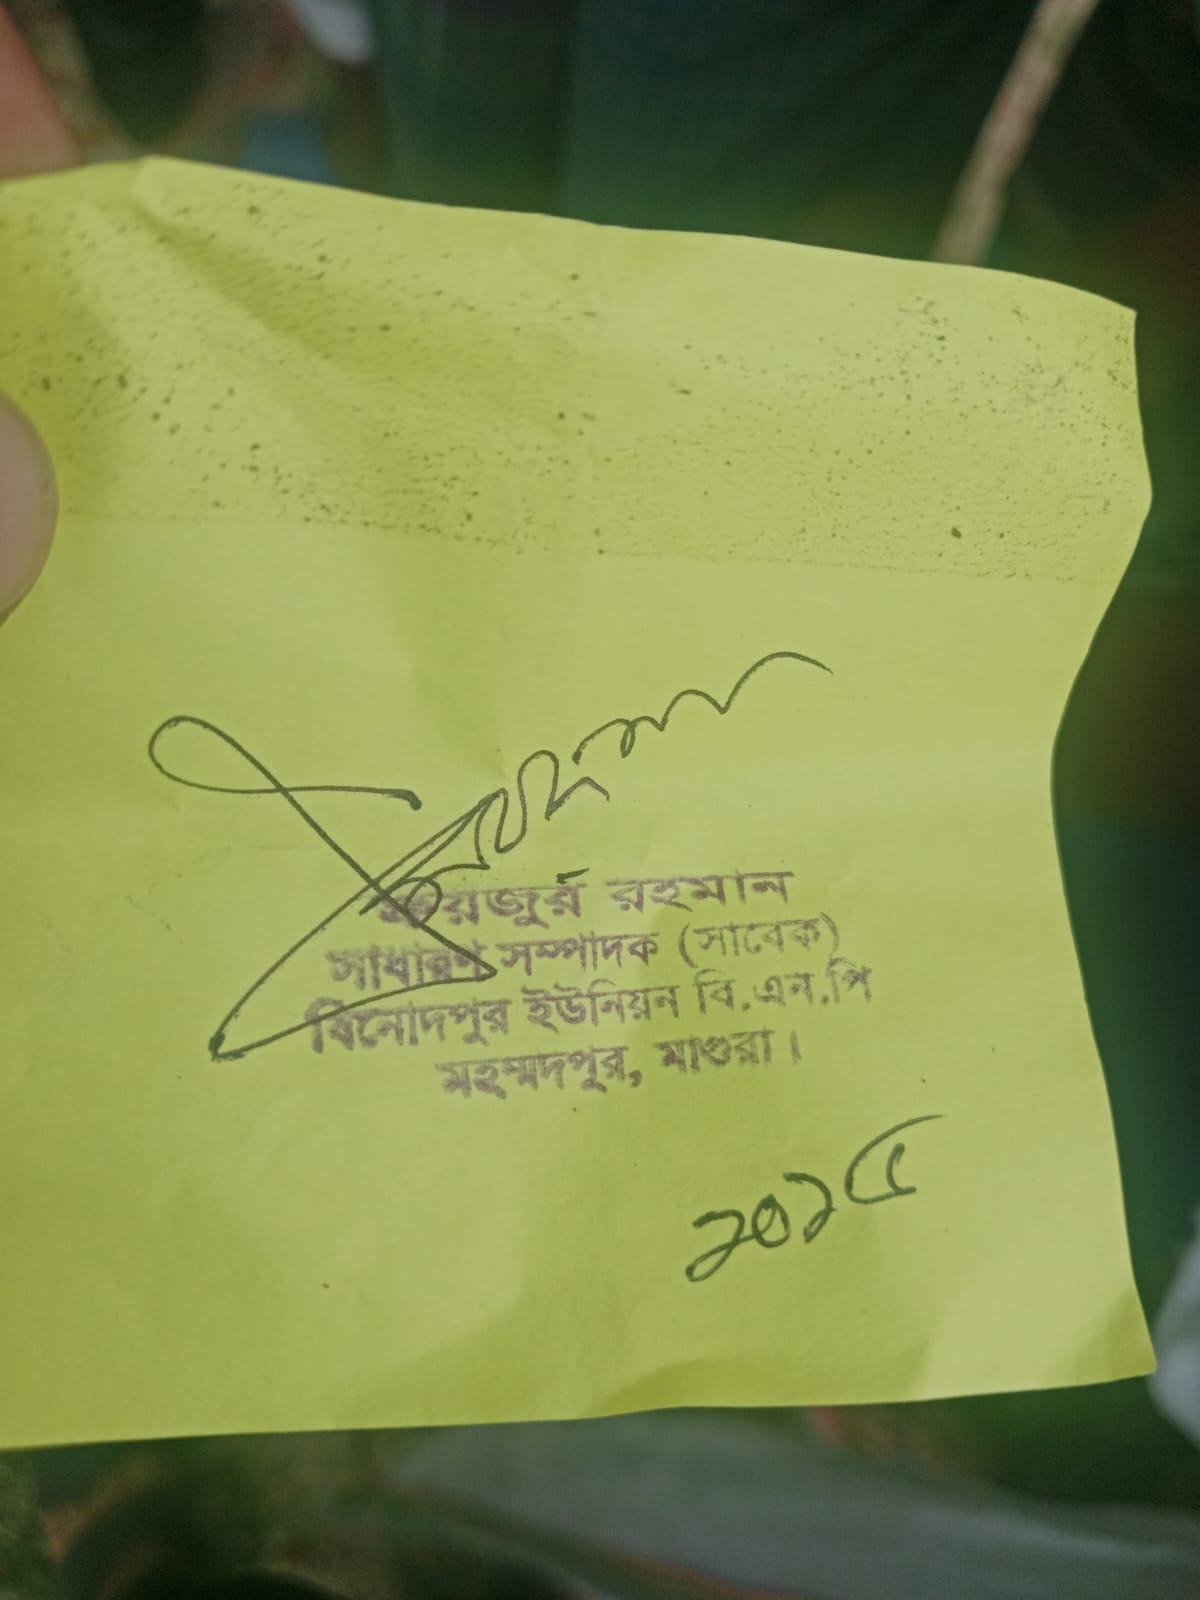 ফয়জুর রহমান
সাধারণ সম্পাদক (সাবেক)
বিনোদপুর ইউনিয়ন বি.এন.পি
মহম্মদপুর, মাগুরা।